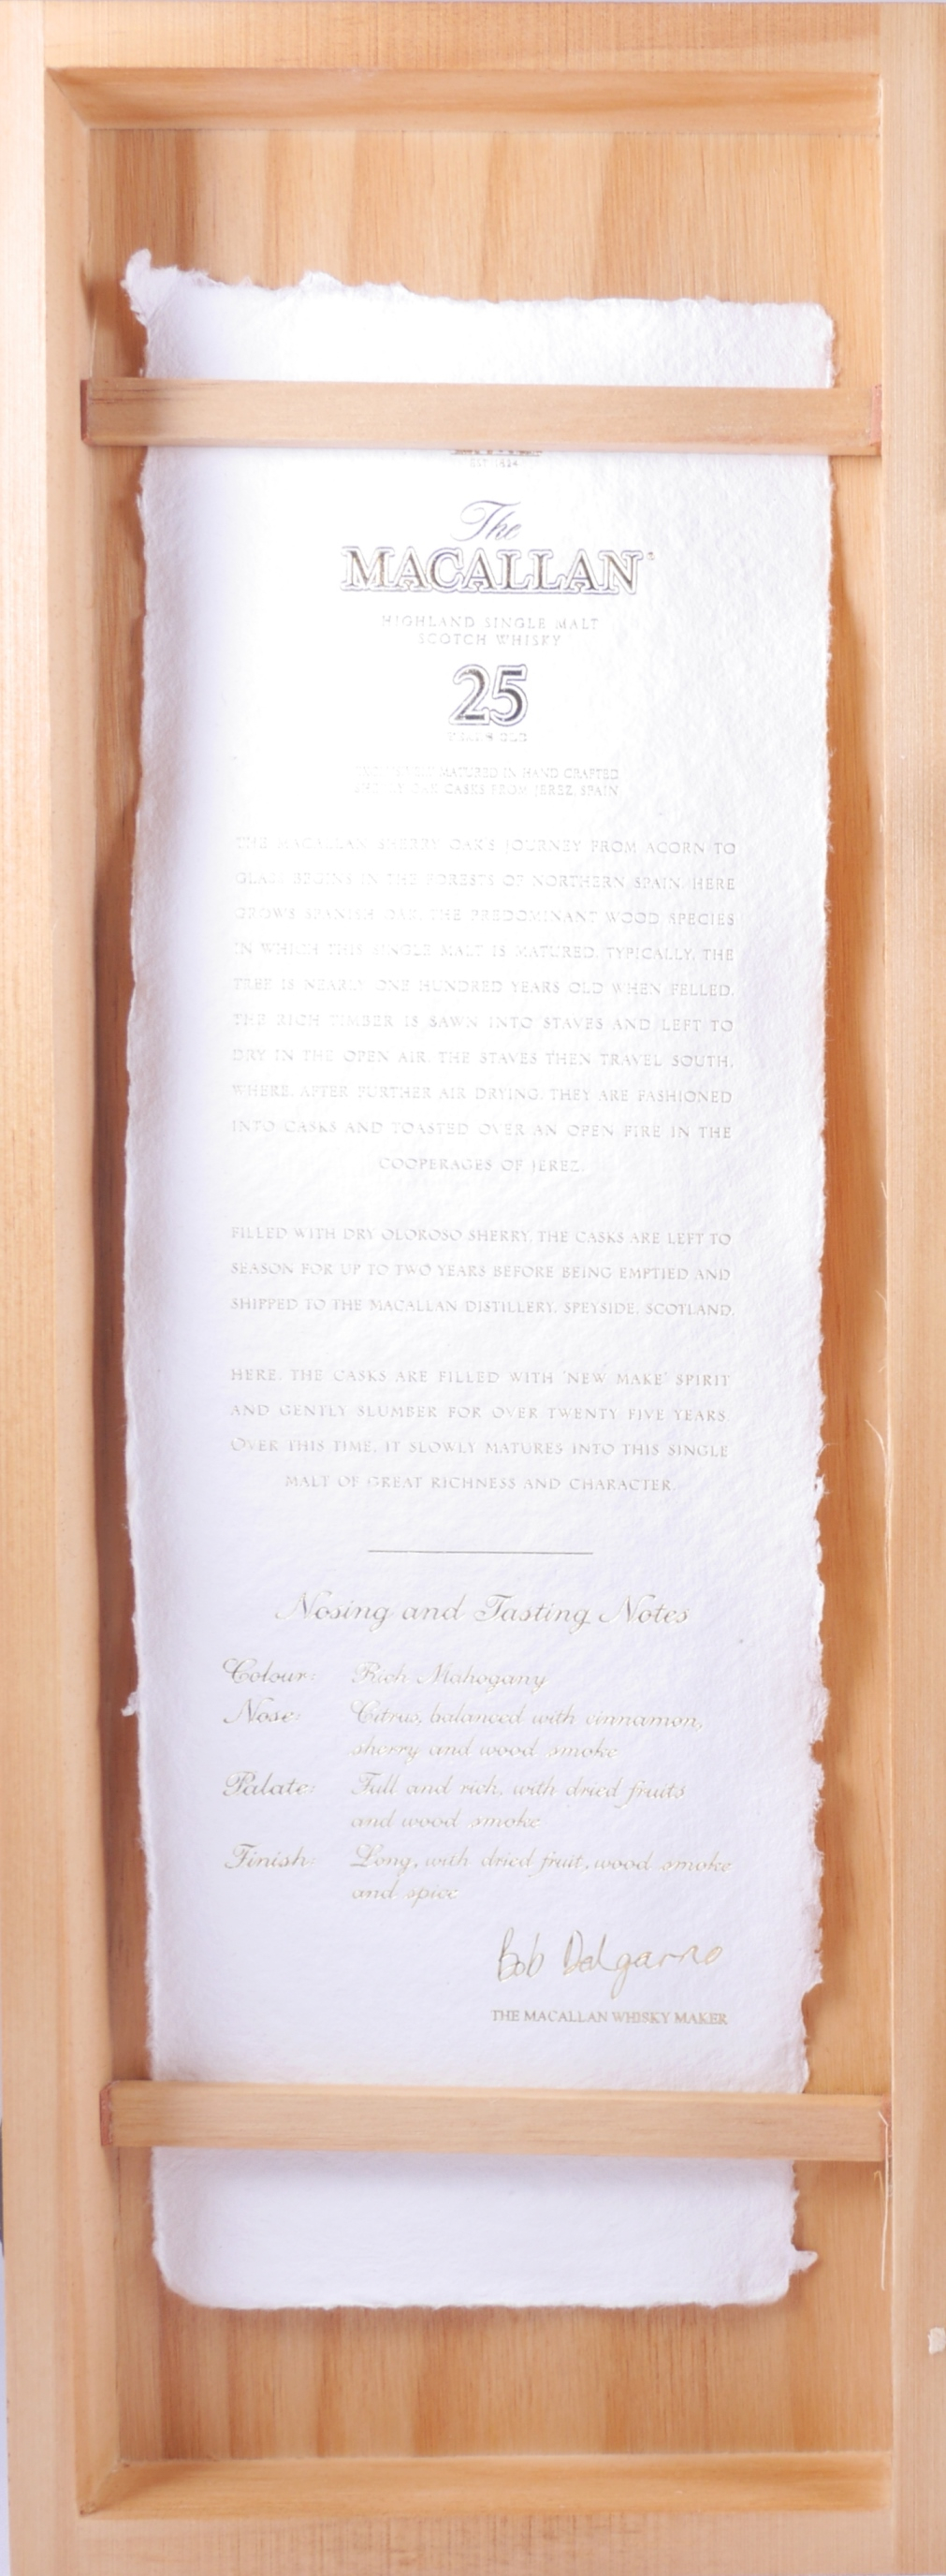 EST. 1824
The
MACALLAN®
HIGHLAND SINGLE MALT
SCOTCH WHISKY
25
YEARS OLD
EXCLUSIVELY MATURED IN HAND CRAFTED
SHERRY OAK CASKS FROM JEREZ, SPAIN
THE MACALLAN SHERRY OAK'S JOURNEY FROM ACORN TO
GLASS BEGINS IN THE FORESTS OF NORTHERN SPAIN. HERE
GROWS SPANISH OAK, THE PREDOMINANT WOOD SPECIES
IN WHICH THIS SINGLE MALT IS MATURED. TYPICALLY, THE
TREE IS NEARLY ONE HUNDRED YEARS OLD WHEN FELLED.
THE RICH TIMBER IS SAWN INTO STAVES AND LEFT TO
DRY IN THE OPEN AIR. THE STAVES THEN TRAVEL SOUTH,
WHERE, AFTER FURTHER AIR DRYING, THEY ARE FASHIONED
INTO CASKS AND TOASTED OVER AN OPEN FIRE IN THE
COOPERAGES OF JEREZ.
FILLED WITH DRY OLOROSO SHERRY, THE CASKS ARE LEFT TO
SEASON FOR UP TO TWO YEARS BEFORE BEING EMPTIED AND
SHIPPED TO THE MACALLAN DISTILLERY, SPEYSIDE, SCOTLAND.
HERE, THE CASKS ARE FILLED WITH 'NEW MAKE' SPIRIT
AND GENTLY SLUMBER FOR OVER TWENTY FIVE YEARS.
OVER THIS TIME, IT SLOWLY MATURES INTO THIS SINGLE
MALT OF GREAT RICHNESS AND CHARACTER.
Nosing and Tasting Notes
Colour: Rich Mahogany
Nose: Citrus, balanced with cinnamon,
sherry and wood smoke
Palate: Full and rich, with dried fruits
and wood smoke
Finish: Long, with dried fruit, wood smoke
and spice
Bob Dalgarno
THE MACALLAN WHISKY MAKER